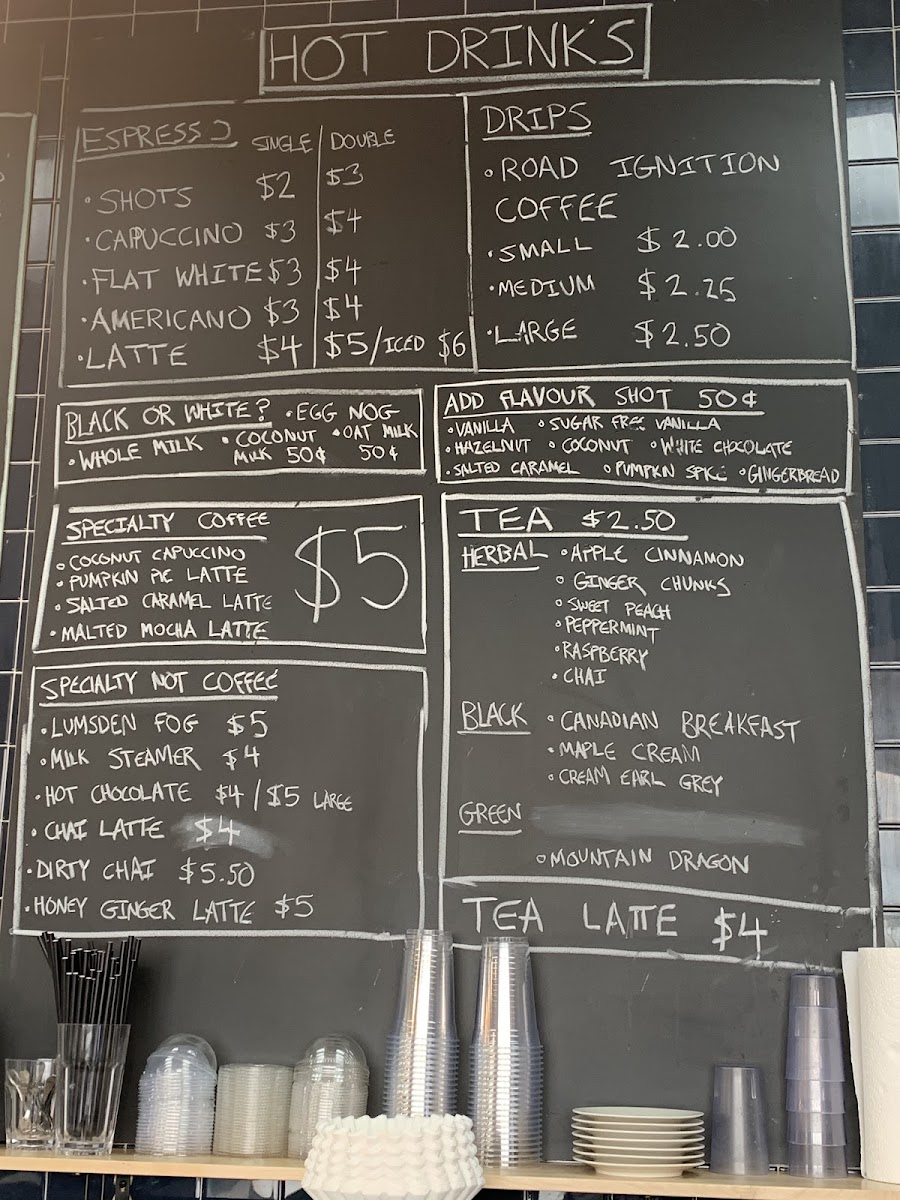 HOT DRINKS
ESPRESSO SINGLE / DOUBLE
• SHOTS $2 $3
• CAPUCCINO $3 $4
• FLAT WHITE $3 $4
• AMERICANO $3 $4
• LATTE $4 $5/ICED $6
DRIPS
• ROAD IGNITION
COFFEE
• SMALL $2.00
• MEDIUM $2.25
• LARGE $2.50
BLACK OR WHITE? • EGG NOG
• WHOLE MILK • COCONUT MILK 50¢ • OAT MILK 50¢
ADD FLAVOUR SHOT 50¢
• VANILLA • SUGAR FREE VANILLA
• HAZELNUT • COCONUT • WHITE CHOCOLATE
• SALTED CARAMEL • PUMPKIN SPICE • GINGERBREAD
SPECIALTY COFFEE
• COCONUT CAPUCCINO
• PUMPKIN PIE LATTE
• SALTED CARAMEL LATTE
• MALTED MOCHA LATTE
$5
SPECIALTY NOT COFFEE
• LUMSDEN FOG $5
• MILK STEAMER $4
• HOT CHOCOLATE $4/$5 LARGE
• CHAI LATTE $4
• DIRTY CHAI $5.50
• HONEY GINGER LATTE $5
TEA $2.50
HERBAL • APPLE CINNAMON
• GINGER CHUNKS
• SWEET PEACH
• PEPPERMINT
• RASPBERRY
• CHAI
BLACK • CANADIAN BREAKFAST
• MAPLE CREAM
• CREAM EARL GREY
GREEN
• MOUNTAIN DRAGON
TEA LATTE $4